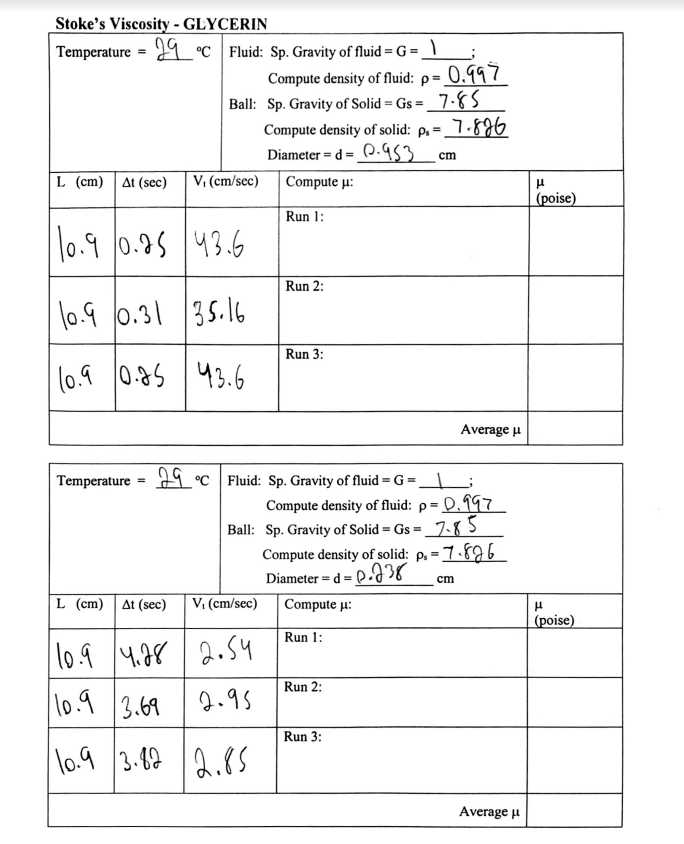 Stoke's Viscosity - GLYCERIN
Temperature = 29 °C
Fluid: Sp. Gravity of fluid = G = 1 ;
Compute density of fluid: ρ = 0.997
Ball: Sp. Gravity of Solid = Gs = 7.85
Compute density of solid: ρs = 7.826
Diameter = d = 0.953 cm
L (cm) Δt (sec) Vt (cm/sec) Compute μ: μ (poise)
Run 1:
10.9 0.25 43.6
Run 2:
10.9 0.31 35.16
Run 3:
10.9 0.25 43.6
Average μ
Temperature = 29 °C
Fluid: Sp. Gravity of fluid = G = 1 ;
Compute density of fluid: ρ = 0.997
Ball: Sp. Gravity of Solid = Gs = 7.85
Compute density of solid: ρs = 7.826
Diameter = d = 0.238 cm
L (cm) Δt (sec) Vt (cm/sec) Compute μ: μ (poise)
Run 1:
10.9 4.28 2.54
Run 2:
10.9 3.69 2.95
Run 3:
10.9 3.82 2.85
Average μ